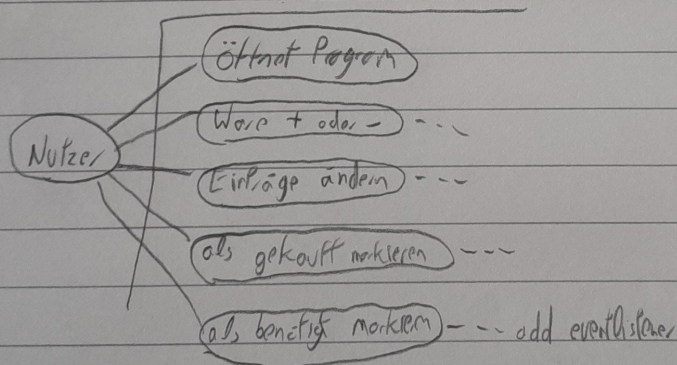 Öffnet Program
Ware + oder -
Nutzer
Einträge ändern
als gekauft markieren
als benötigt markiern add eventlistener